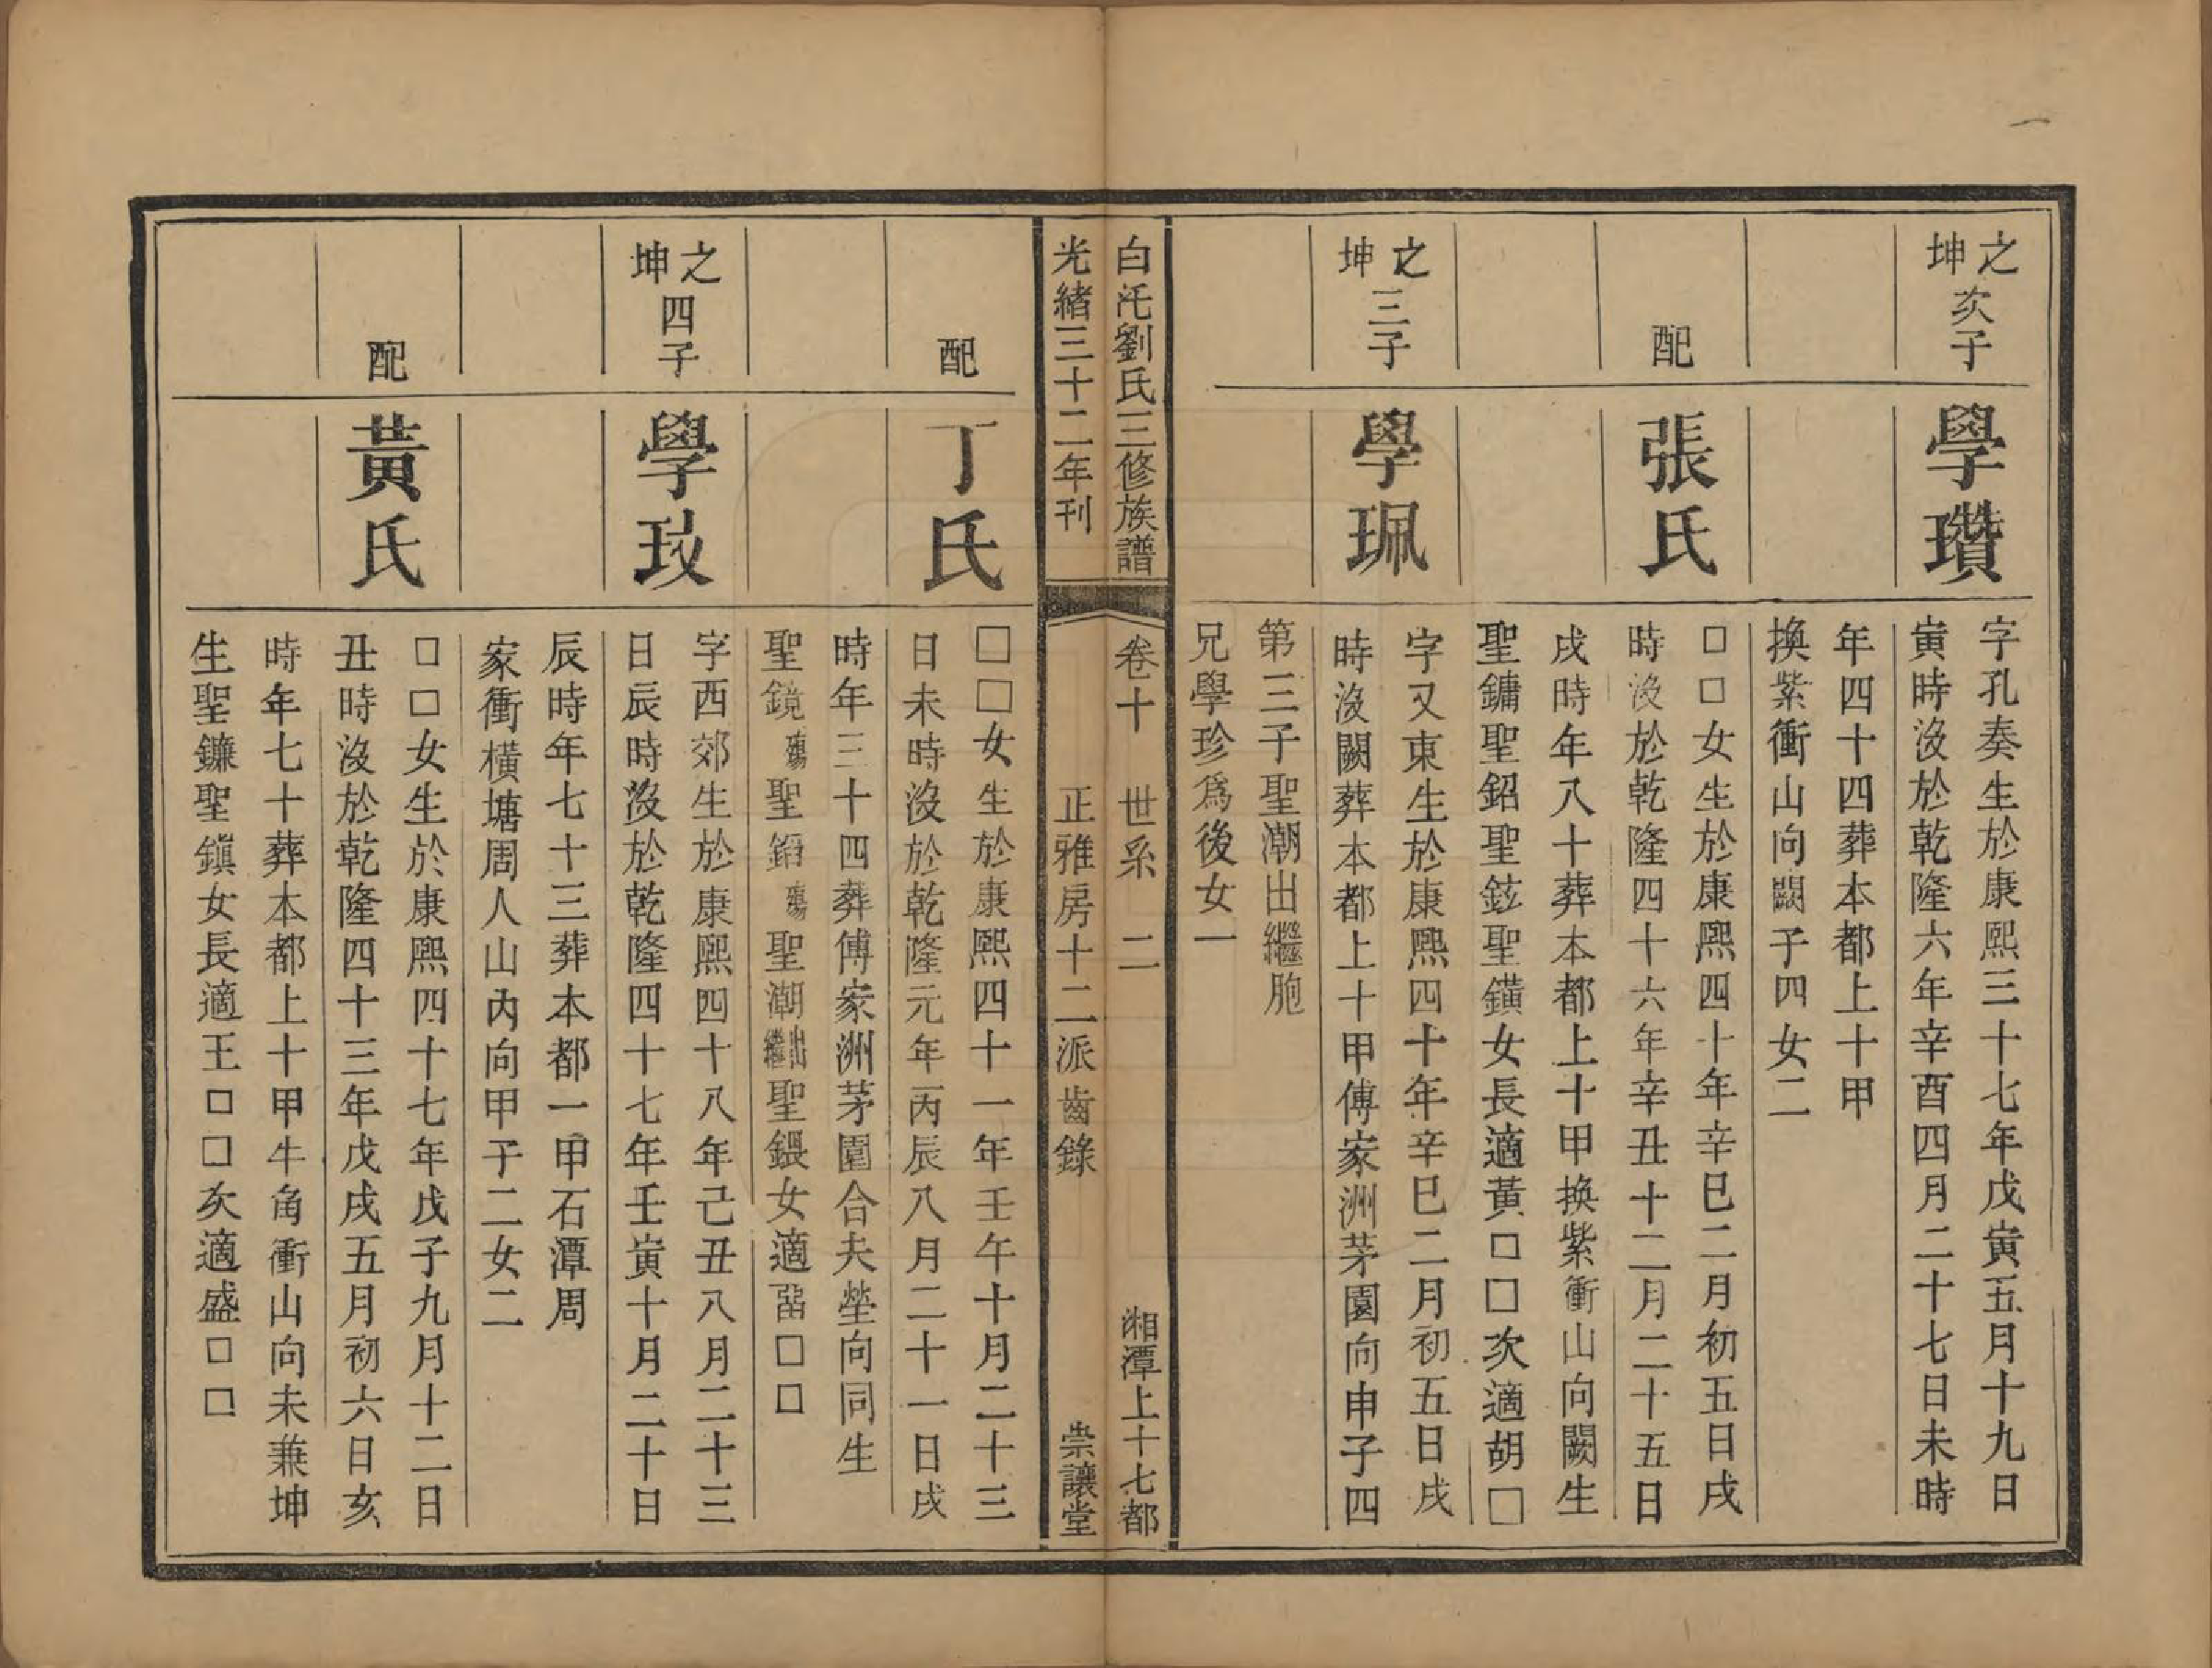 之坤次子
學瓚
字孔奏生於康熙三十七年戊寅五月十九日
寅時沒於乾隆六年辛酉四月二十七日未時
年四十四葬本都上十甲
換紫衝山向闕子四女二
配
張氏
□□女生於康熙四十年辛巳二月初五日戌
時沒於乾隆四十六年辛丑十二月二十五日
戌時年八十葬本都上十甲換紫衝山向闕生
聖鏞聖鉊聖鉉聖鐄女長適黃□□次適胡□
之坤三子
學珮
字又東生於康熙四十年辛巳二月初五日戌
時沒闕葬本都上十甲傅家洲茅園向申子四
第三子聖潮出繼胞
兄學珍為後女一
白汑劉氏三修族譜
卷十 世系 二
湘潭上十七都
光緒三十二年刊
正雅房十二派齒錄
崇讓堂
配
丁氏
□□女生於康熙四十一年壬午十月二十三
日未時沒於乾隆元年丙辰八月二十一日戌
時年三十四葬傅家洲茅園合夫塋向同生
聖鏡殤聖鋁殤聖潮出繼聖鍡女適□□
之坤四子
學玫
字西郊生於康熙四十八年己丑八月二十三
日辰時沒於乾隆四十七年壬寅十月二十日
辰時年七十三葬本都一甲石潭周
家衝橫塘周人山內向甲子二女二
配
黃氏
□□女生於康熙四十七年戊子九月十二日
丑時沒於乾隆四十三年戊戌五月初六日亥
時年七十葬本都上十甲牛角衝山向未兼坤
生聖鐮聖鎮女長適王□□次適盛□□